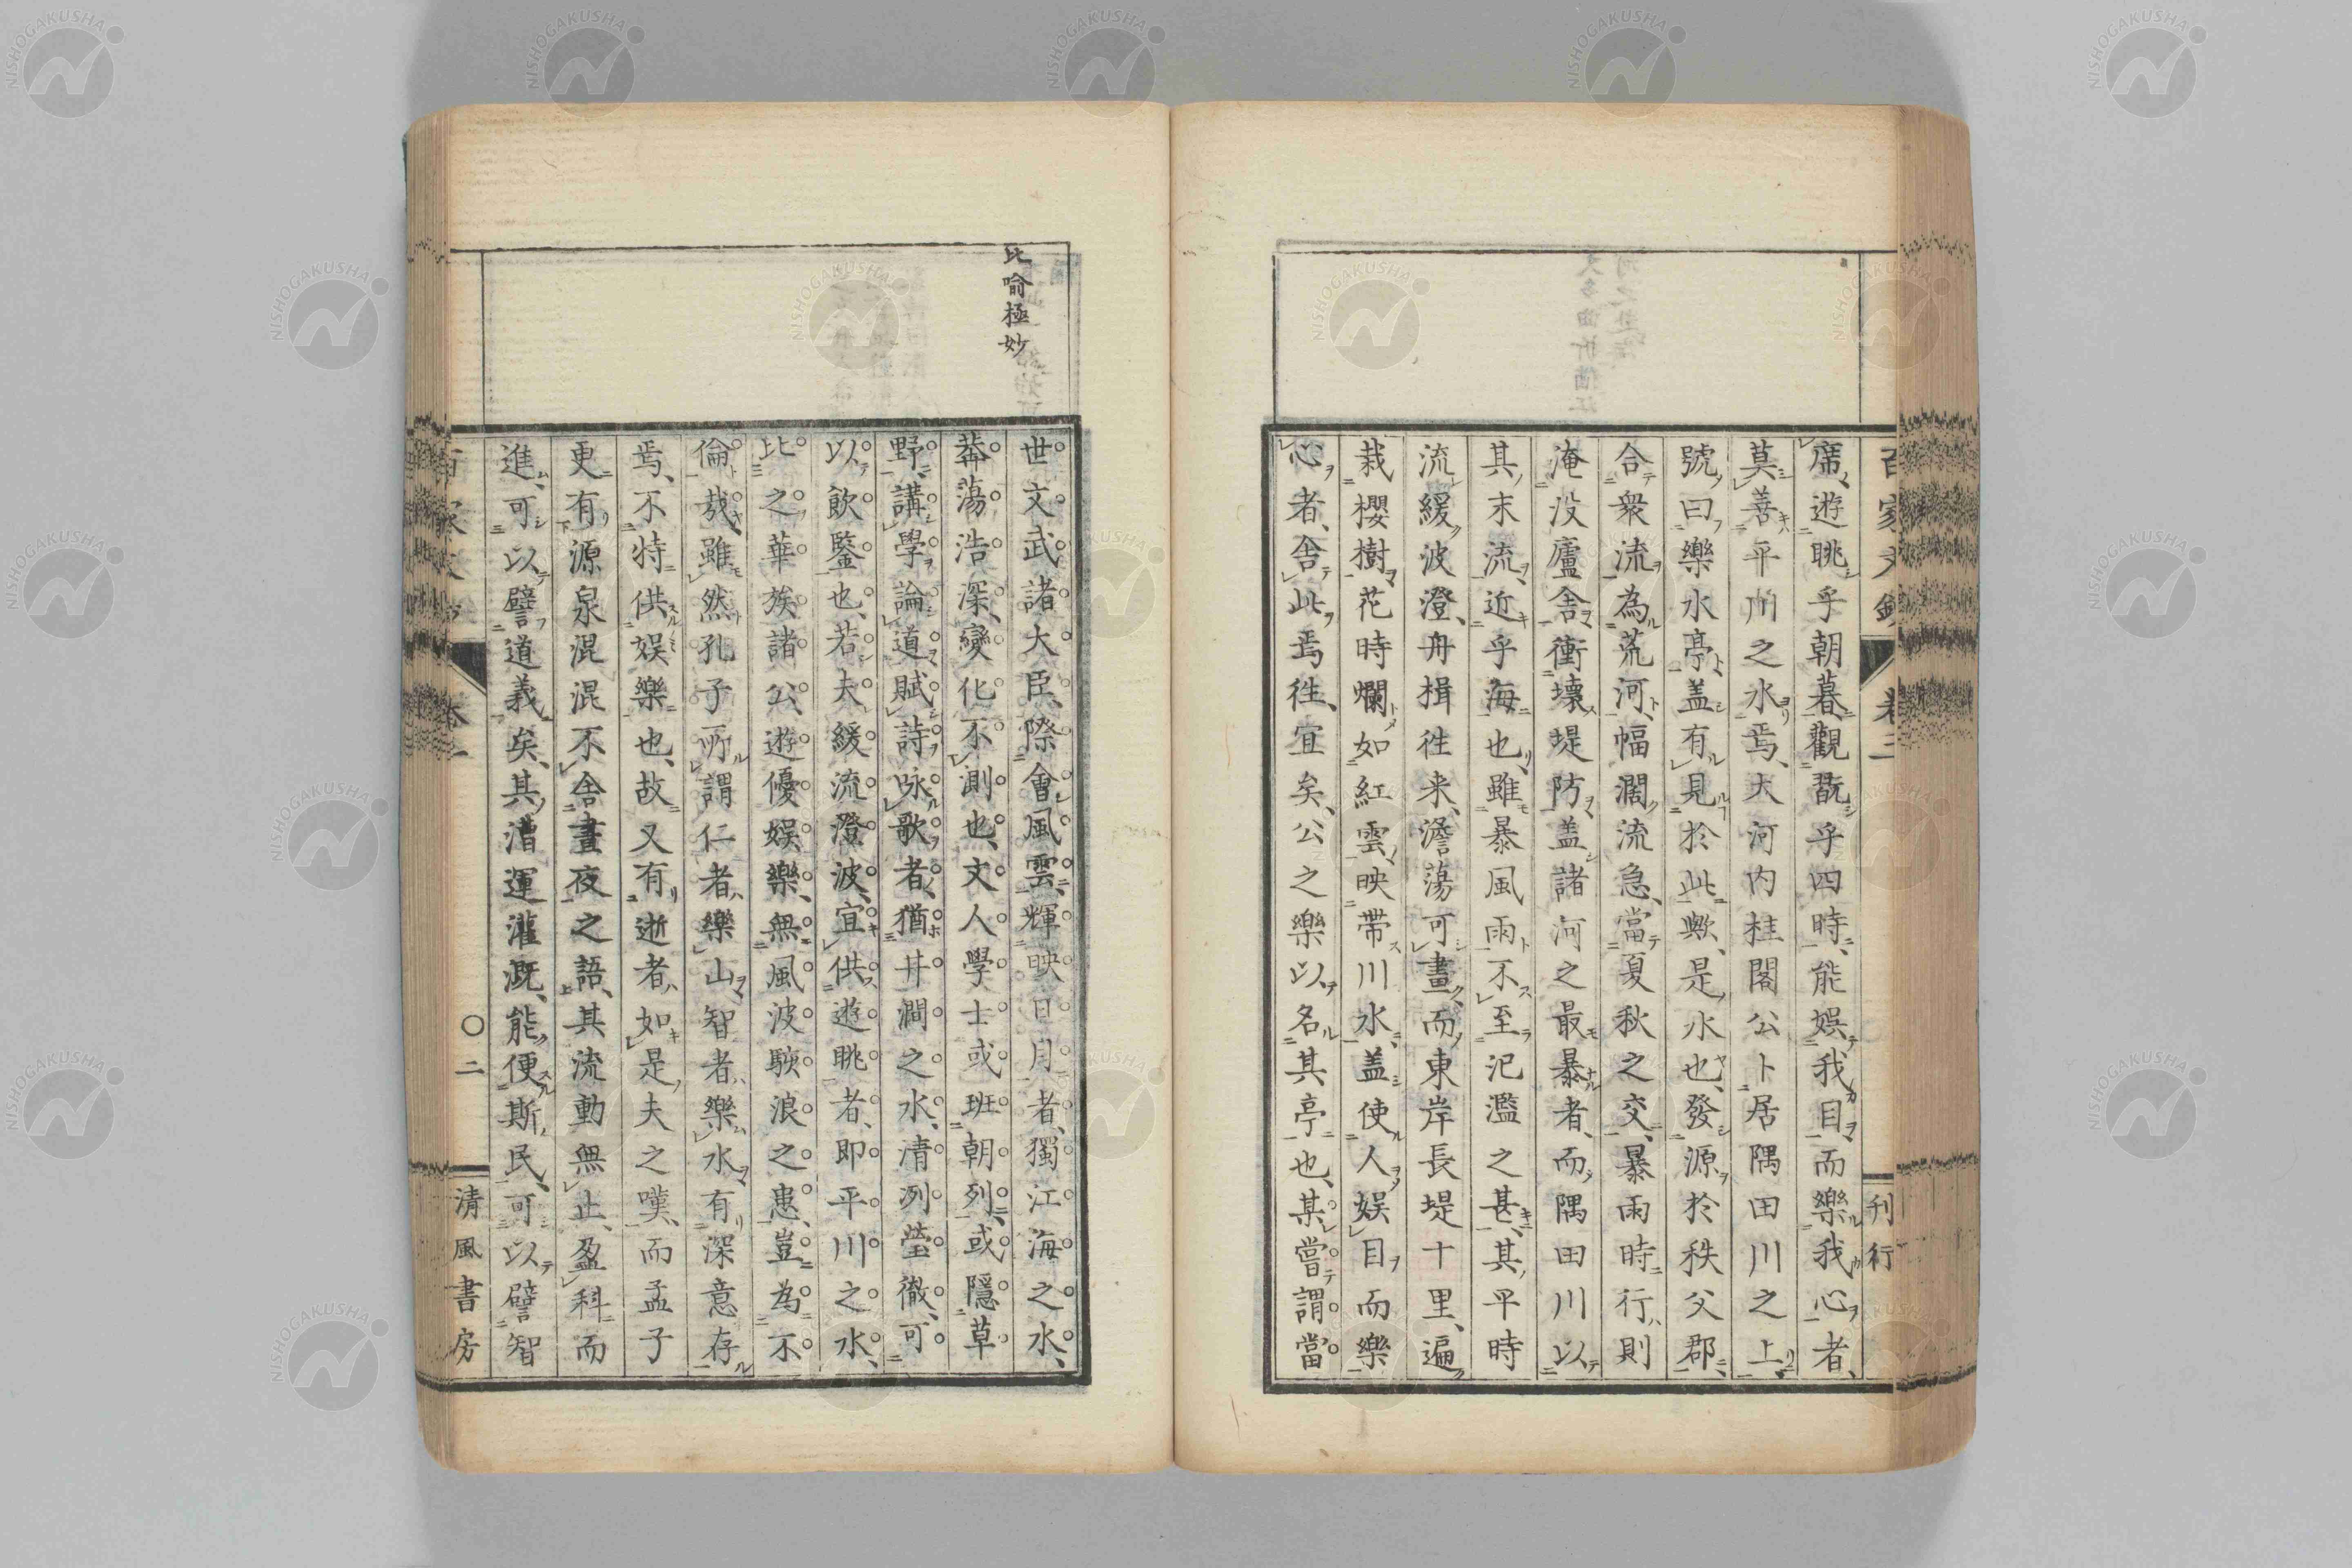 席遊眺乎朝暮觀翫乎四時、能娯我目而樂我心者、
莫善平川之水焉、大河内桂閣公卜居隅田川之上、
號曰樂水亭、盖有見於此歟、是水也、發源於秩父郡、
合衆流為荒河、幅濶流急、當夏秋之交、暴雨時行、則
淹没廬舎衝壞堤防、盖諸河之最暴者、而隅田川以
其末流、近乎海也、雖暴風雨不至汜濫之甚、其平時
流緩波澄、舟楫徃来、澹蕩可畫、而東岸長堤十里、遍
栽櫻樹花時爛如紅雲、映帯川水、盖使人娯目而樂
心者、舎此焉徃、宜矣、公之樂以名其亭也、某嘗謂當
刊行
比喻極妙
世文武諸大臣、際會風雲、輝映日月者、獨江海之水、
莽蕩浩深、變化不測也、文人學士或班朝列、或隱草
野、講學論道、賦詩咏歌者、猶井澗之水、清冽瑩徹、可
以飲鑒也、若夫緩流澄波、宜供遊眺者、即平川之水、
比之華族諸公、遊優娯樂、無風波駭浪之患、豈為不
倫哉、雖然孔子所謂仁者樂山、智者樂水、有深意存
焉、不特供娯樂也、故又有逝者如是夫之嘆、而孟子
更有源泉混混不舎晝夜之語、其流動無止、盈科而
進、可以譬道義矣、其漕運灌溉、能便斯民、可以譬智
〇二
清風書房